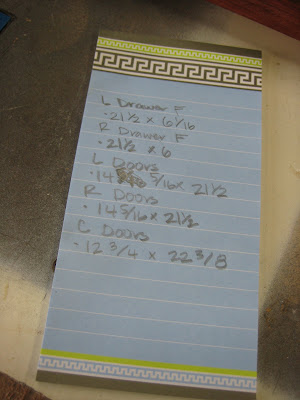 L Drawer F
· 21 1/2 x 6 1/16
R Drawer F
· 21 1/2 x 6
L Doors
· 14 5/16 x 21 1/2
R Doors
· 14 5/16 x 21 1/2
C Doors
· 12 3/4 x 22 3/8